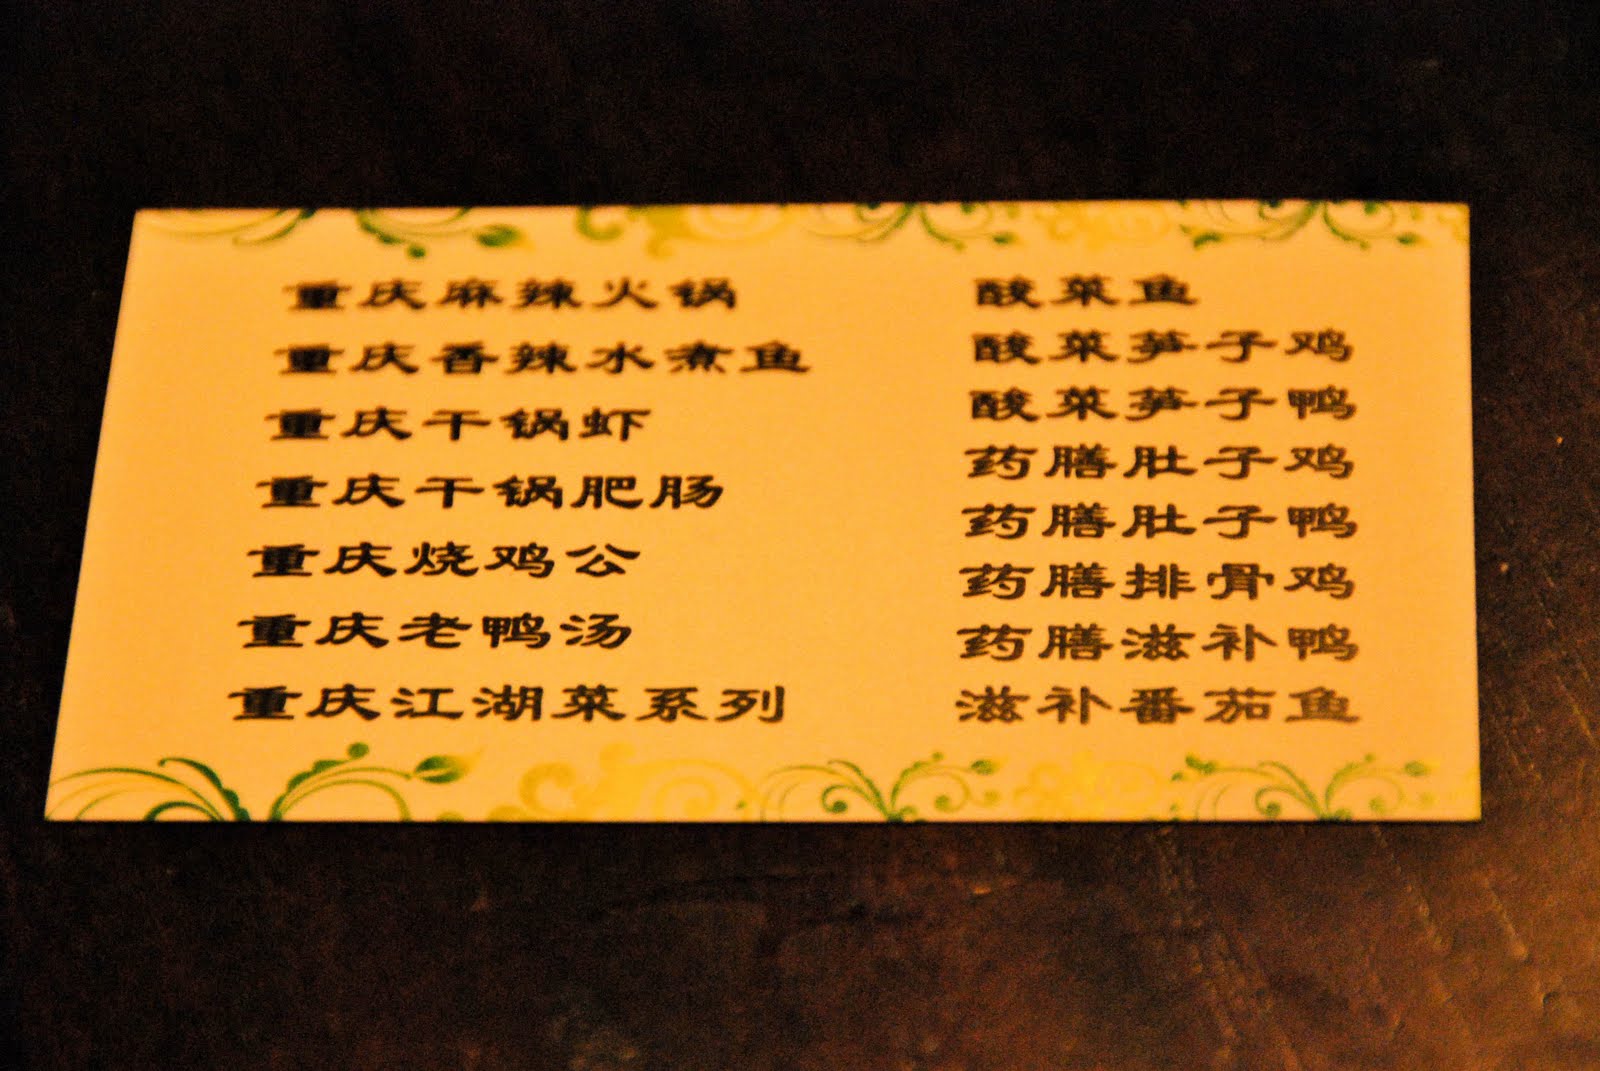 重庆麻辣火锅
重庆香辣水煮鱼
重庆干锅虾
重庆干锅肥肠
重庆烧鸡公
重庆老鸭汤
重庆江湖菜系列
酸菜鱼
酸菜笋子鸡
酸菜笋子鸭
药膳肚子鸡
药膳肚子鸭
药膳排骨鸡
药膳滋补鸭
滋补番茄鱼